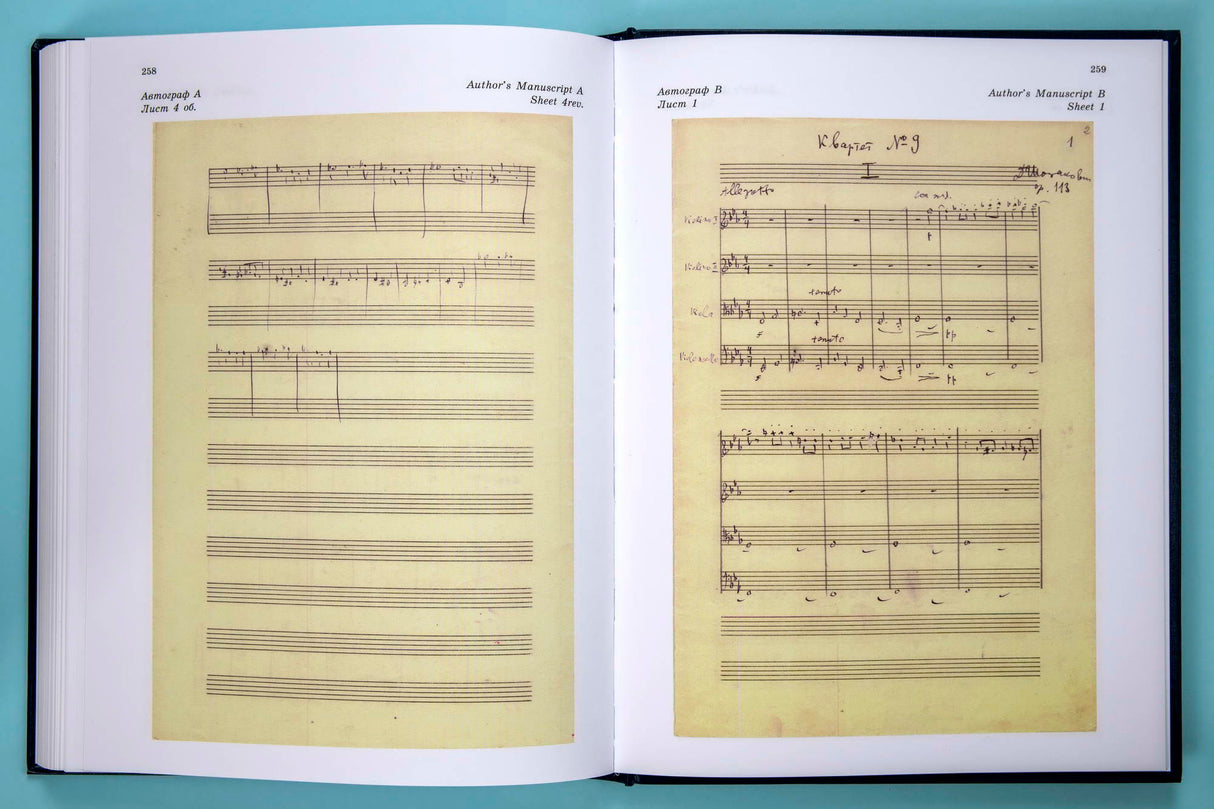 258
Автограф А
Лист 4 об.
Author's Manuscript A
Sheet 4rev.
259
Автограф В
Лист 1
Author's Manuscript B
Sheet 1
2
1
Квартет № 9
I
ДШостакович
op. 113
Allegretto
Violino I
p
Violino II
tenuto
Viola
f
pp
tenuto
Violoncello
f
pp